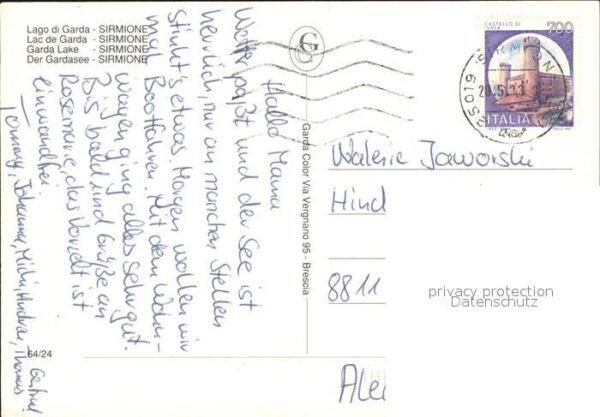 Lago di Garda - SIRMIONE
Lac de Garda - SIRMIONE
Garda Lake - SIRMIONE
Der Gardasee - SIRMIONE
Hallo Mama
Wetter paßt und der See ist
herrlich, nur an manchen Stellen
stinkt's etwas. Morgen wollen wir
mal Bootfahren. Mit dem Wohn-
wagen ging alles sehr gut.
Bis bald und Grüße an
Rosemarie, das Vorzelt ist
einwandfrei.
Johanna, Michi, Andrea, Thomas
64/24
Garda Color Via Vergnano 95 - Brescia
CG
CASTELLO DI
700
ITALIA
SIRMIONE
Walerie Jaworski
Hind
8811
Alle
privacy protection
Datenschutz